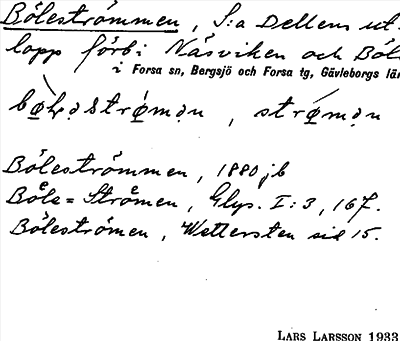 Böleströmmen, S:a Dellens ut-
lopp förbi Näsviken och Böl
i Forsa sn, Bergsjö och Forsa tg, Gävleborgs län
Böleströmmen, 1880 jb
Böle=Strömen, Glys. I:3, 167.
Böleströmen, Wettersten sid 15.
LARS LARSSON 1933